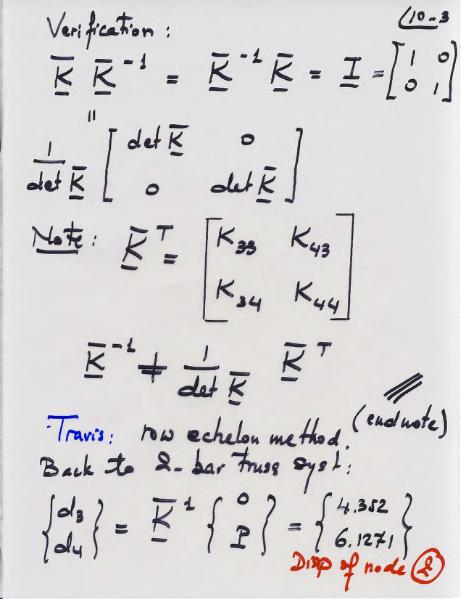 10-3
Verification:
K̲̅ K̲̅⁻¹ = K̲̅⁻¹ K̲̅ = I̲ = [1 0; 0 1]
=
1/det K̲̅ [det K̲̅ 0; 0 det K̲̅]
Note: K̲̅ᵀ = [K₃₃ K₄₃; K₃₄ K₄₄]
K̲̅⁻¹ ≠ 1/det K̲̅ K̲̅ᵀ
(end note)
Travis: row echelon method.
Back to 2-bar truss syst:
{d₃; d₄} = K̲̅⁻¹ {0; P} = {4.352; 6.1271}
Disp of node 2